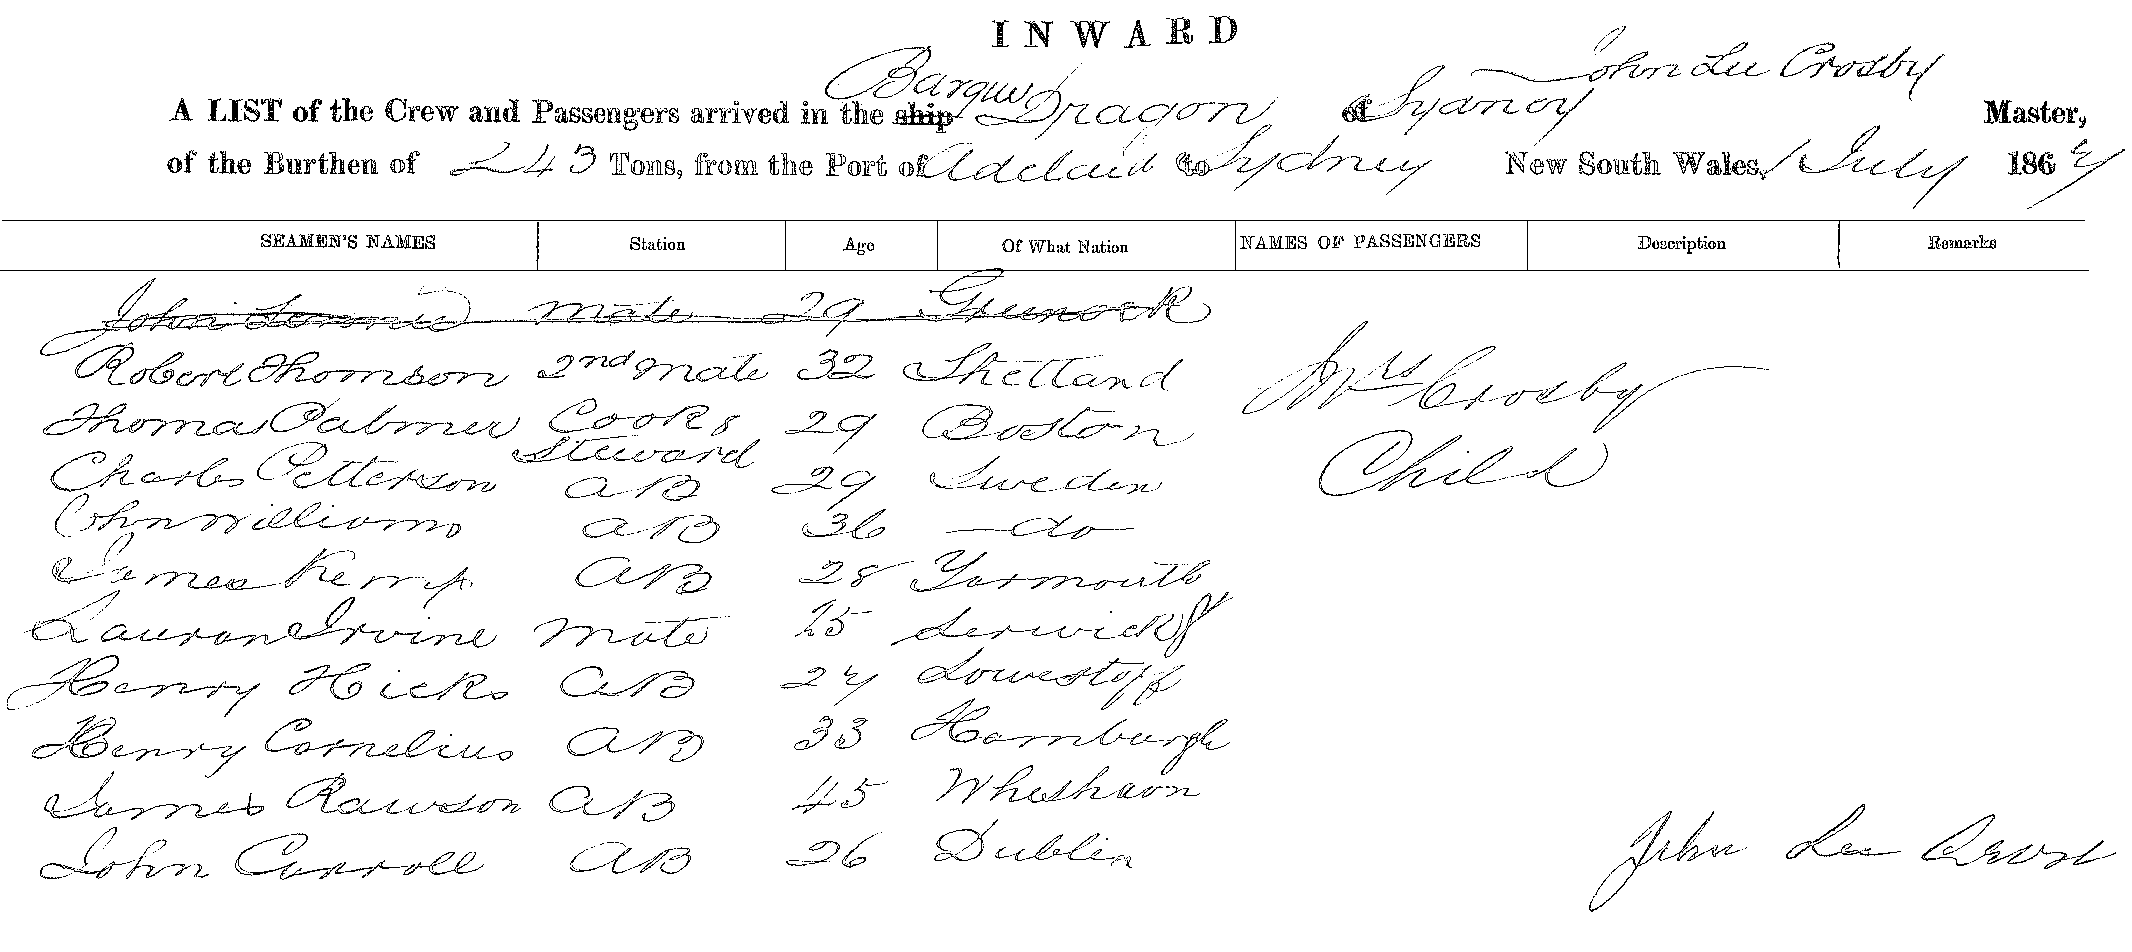 INWARD
A LIST of the Crew and Passengers arrived in the ship Barque Dragon of Sydney John Lee Crosby Master,
of the Burthen of 243 Tons, from the Port of Adelaid to Sydney New South Wales, 1 July 1864
SEAMEN'S NAMES Station Age Of What Nation NAMES OF PASSENGERS Description Remarks
John Lennie mate 29 Greenock
Robert Thomson 2nd mate 32 Shetland Mrs Crosby
Thomas Palmer Cook & Steward 29 Boston
Charles Petterson AB 29 Sweden Child
John Williams AB 36 —do—
James Kemp AB 28 Yarmouth
Irvine Mate 25 Lerwick
Henry Hicks AB 24 Lowestoff
Henry Cornelius AB 33 Hamburgh
James Rawson AB 45
John Carroll AB 26 Dublin
John Lee Crosby